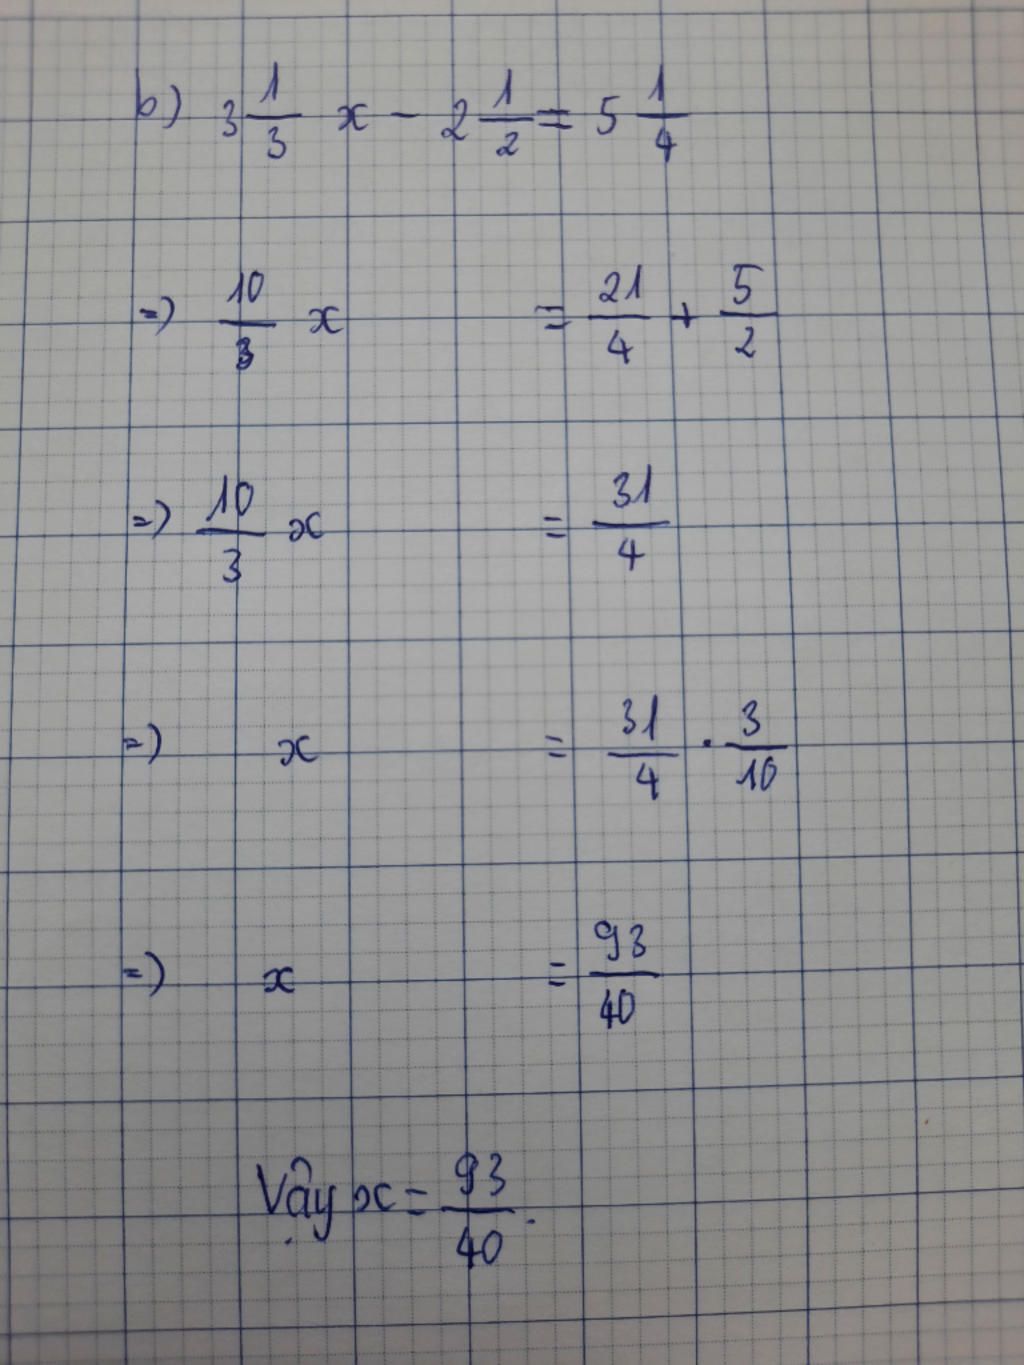 b) 3 1/3 x - 2 1/2 = 5 1/4
=) 10/3 x = 21/4 + 5/2
=) 10/3 x = 31/4
=) x = 31/4 . 3/10
=) x = 93/40
Vậy x = 93/40.